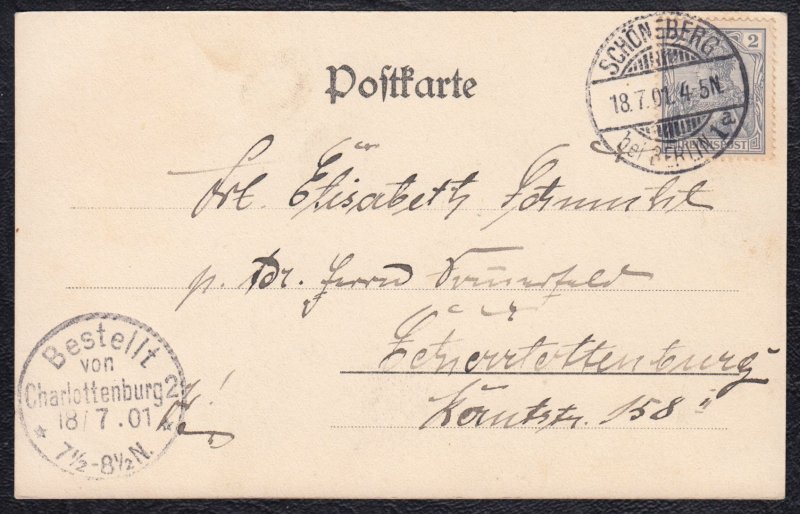 Postkarte
2
REICHSPOST
SCHÖNEBERG
18.7.01. 4-5N.
bei BERLIN 1a
Frl. Elisabeth
p. Adr. Herrn Sommerfeld
Charlottenburg
Kantstr. 158
Bestellt
von
Charlottenburg 2
18/7.01
7½-8½N.